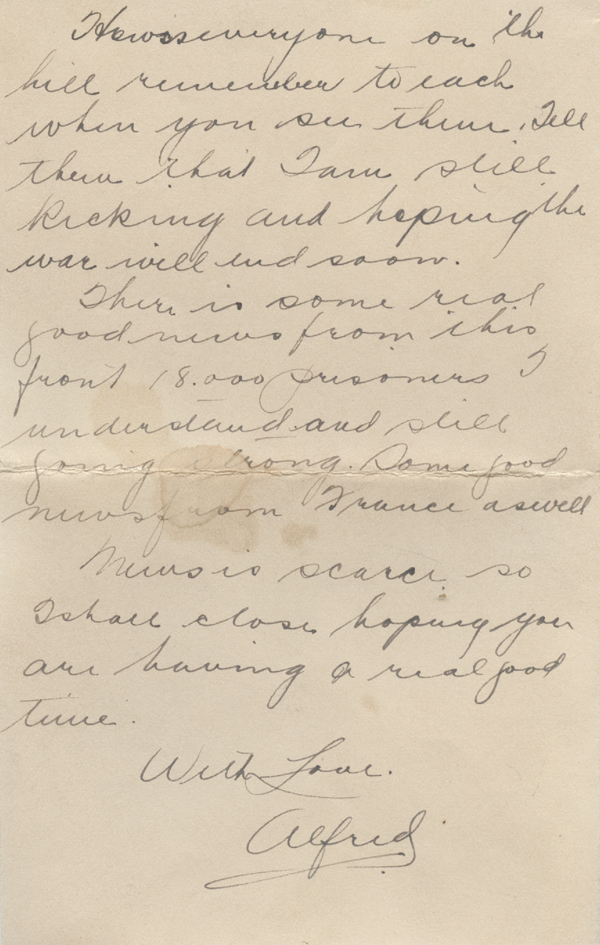 Howis everyone on the
hill remember to each
when you see them. Tell
them that I am still
kicking and hoping the
war will end soon.
There is some real
good news from this
front 18.000 prisoners I
understand and still
going strong. Some good
news from France aswell
News is scarce so
I shall close hoping you
are having a real good
time.
With Love.
Alfred